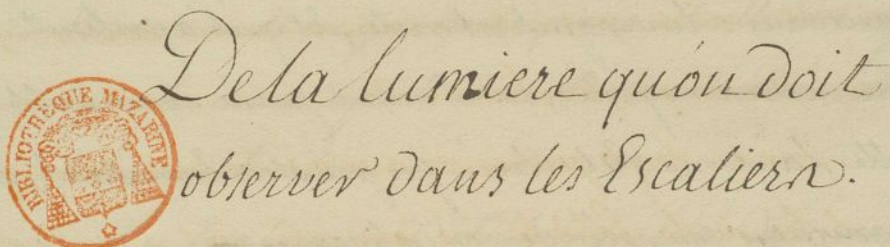 De la lumiere qu'on doit
observer dans les Escaliers.
BIBLIOTHÈQUE MAZARINE